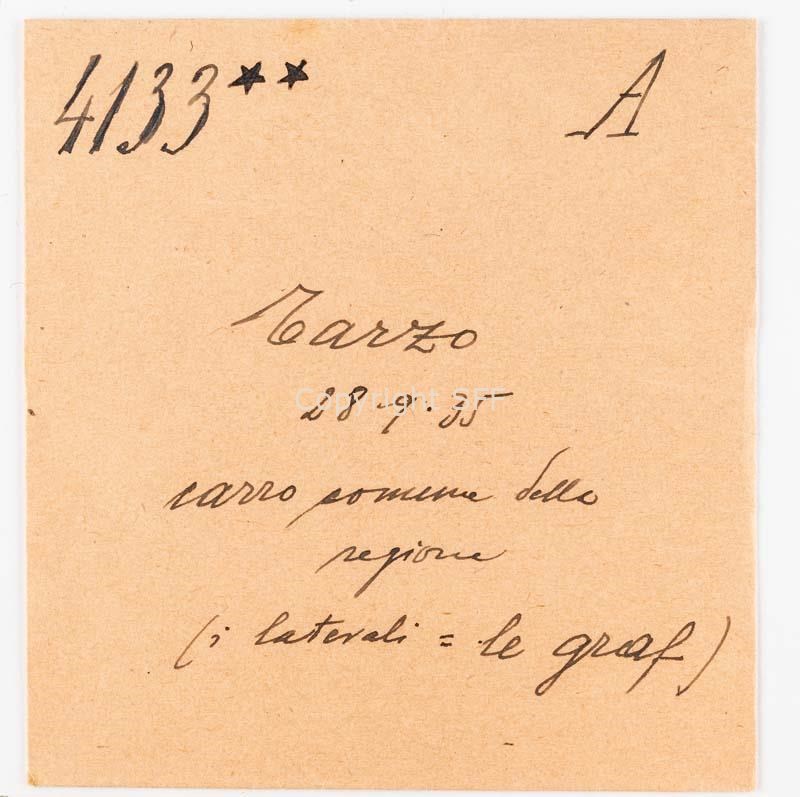 4133** A
Tarzo
28.9.35
carro comune della
regione
(i laterali = le graf)
Copyright SFF